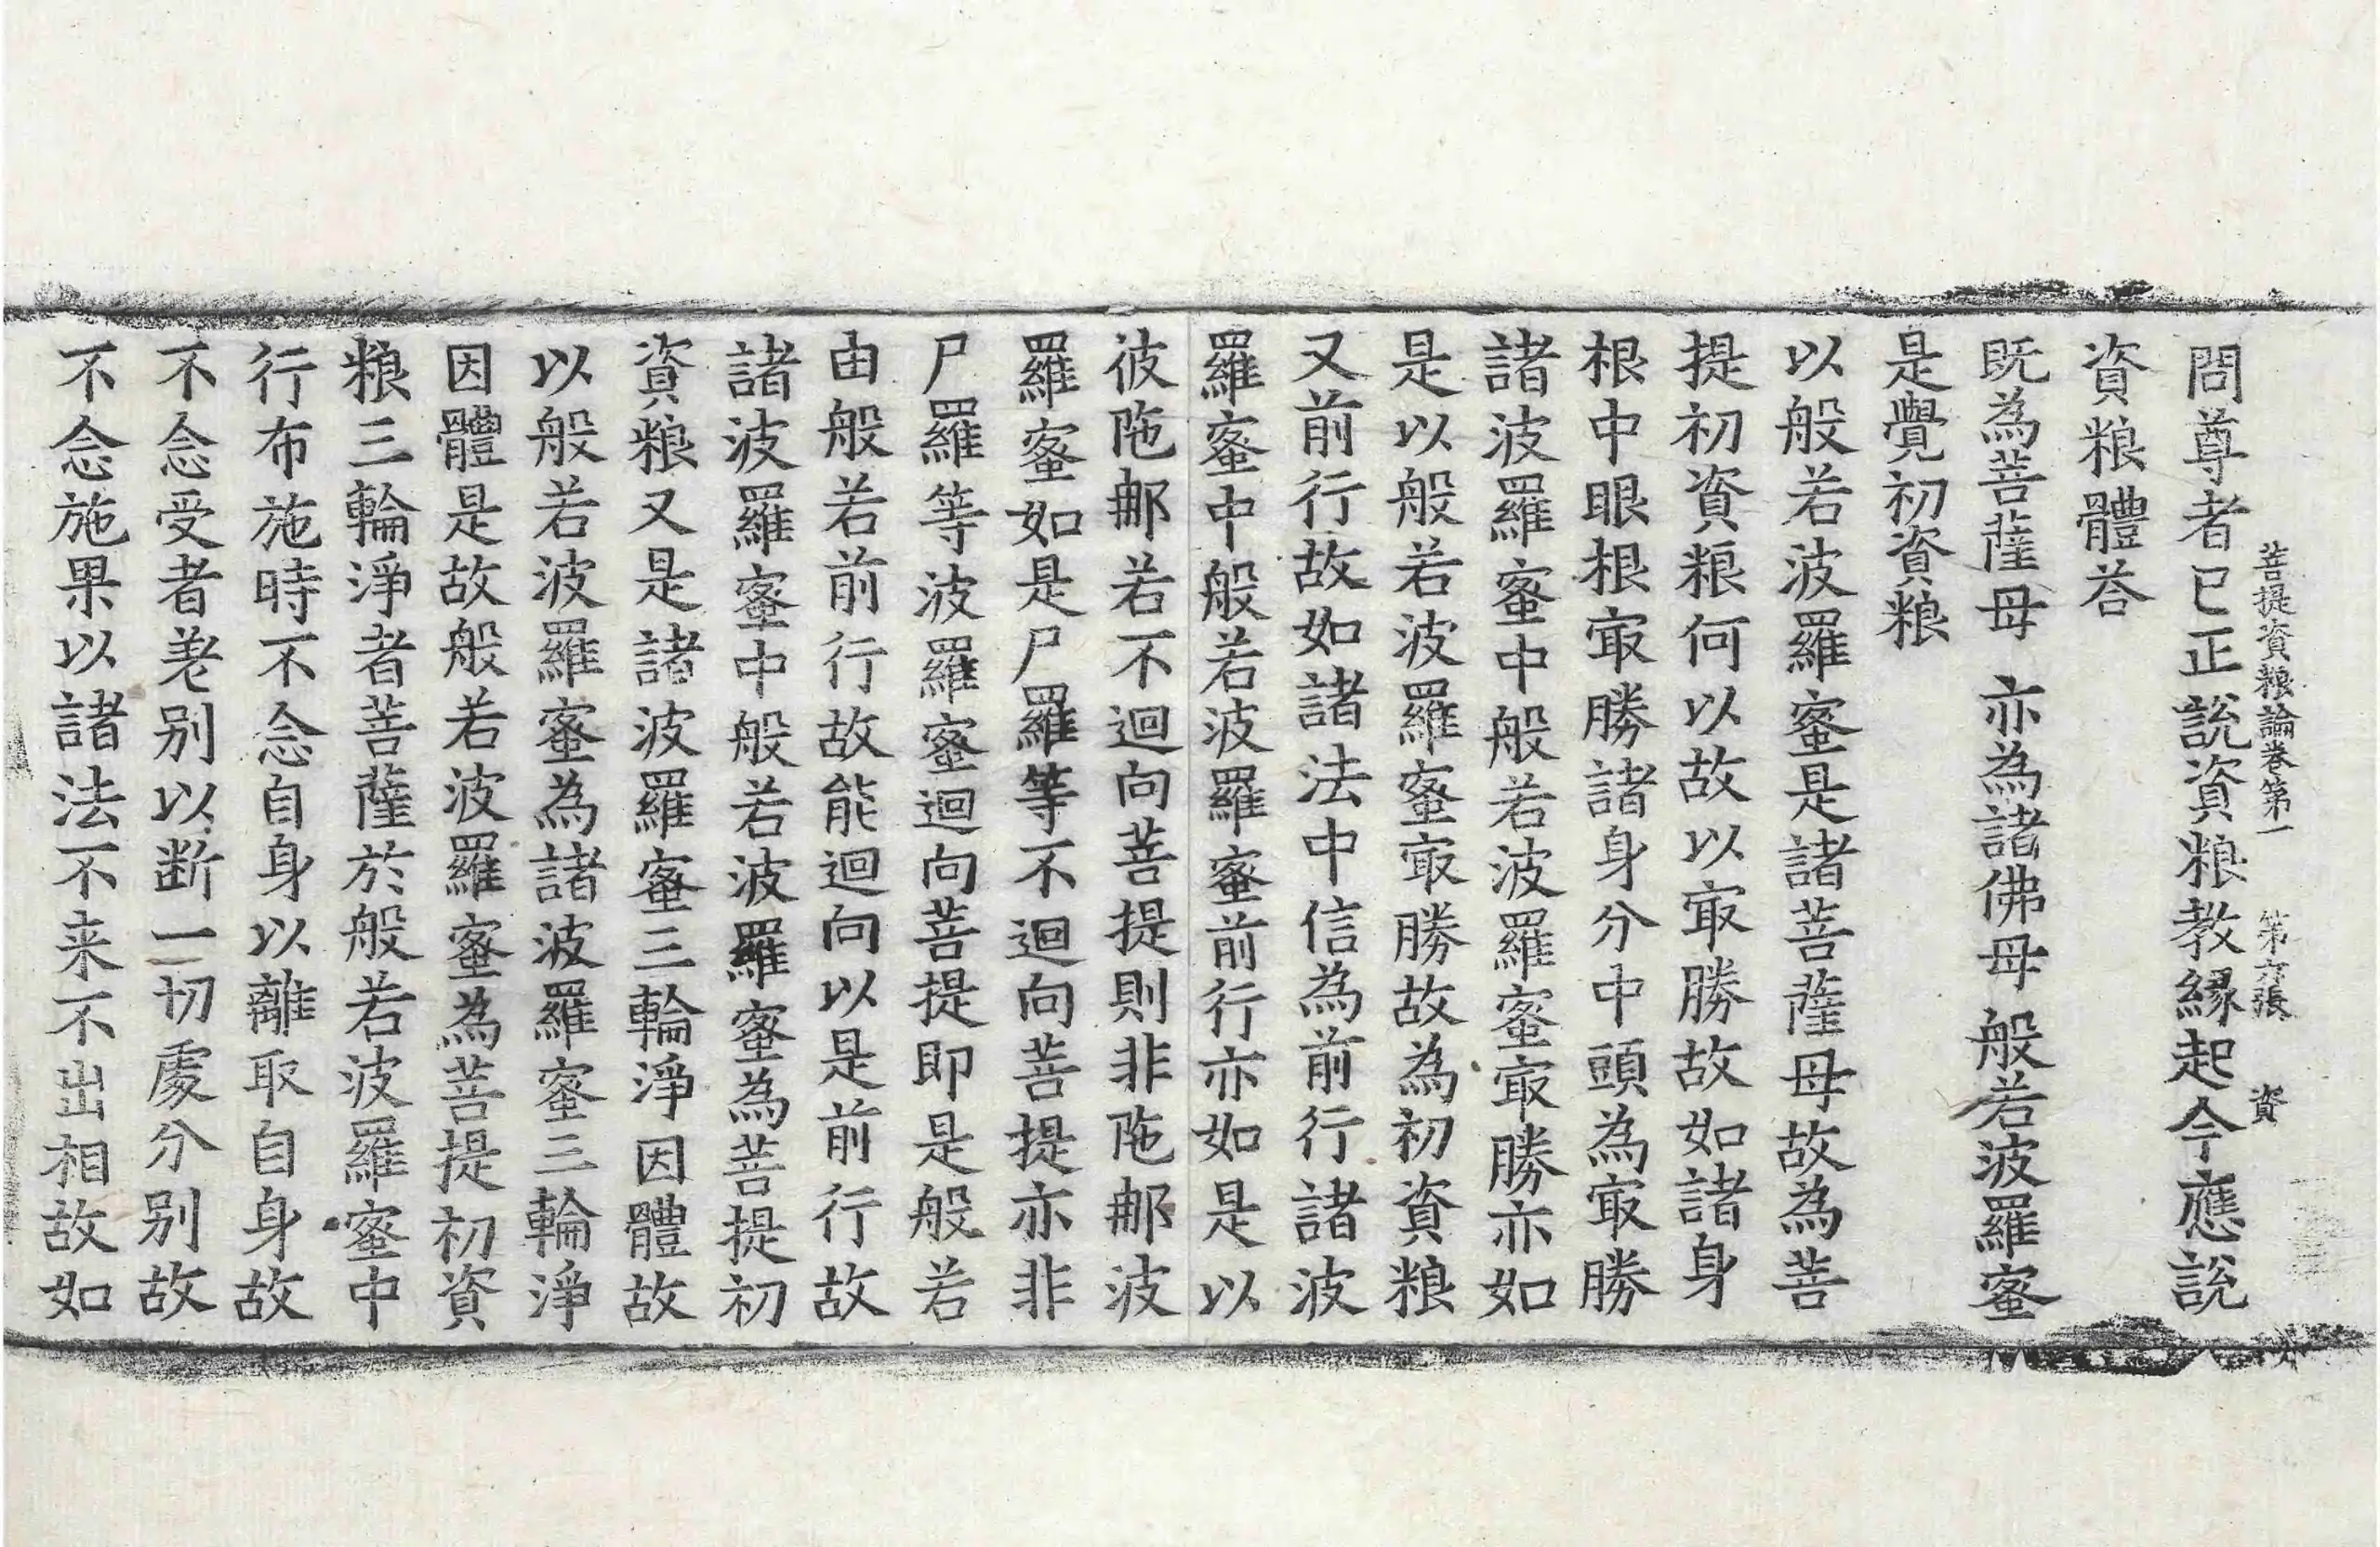 菩提資粮論卷第一　第六張　資
問尊者已正說資粮教緣起今應說
資粮體荅
既為菩薩母　亦為諸佛母　般若波羅蜜
是覺初資粮
以般若波羅蜜是諸菩薩母故為菩
提初資粮何以故以㝡勝故如諸身
根中眼根㝡勝諸身分中頭為㝡勝
諸波羅蜜中般若波羅蜜㝡勝亦如
是以般若波羅蜜㝡勝故為初資粮
又前行故如諸法中信為前行諸波
羅蜜中般若波羅蜜前行亦如是以
彼陁郍若不迴向菩提則非陁郍波
羅蜜如是尸羅等不迴向菩提亦非
尸羅等波羅蜜迴向菩提即是般若
由般若前行故能迴向以是前行故
諸波羅蜜中般若波羅蜜為菩提初
資粮又是諸波羅蜜三輪淨因體故
以般若波羅蜜為諸波羅蜜三輪淨
因體是故般若波羅蜜為菩提初資
粮三輪淨者菩薩於般若波羅蜜中
行布施時不念自身以離取自身故
不念受者差別以断一切處分別故
不念施果以諸法不来不出相故如